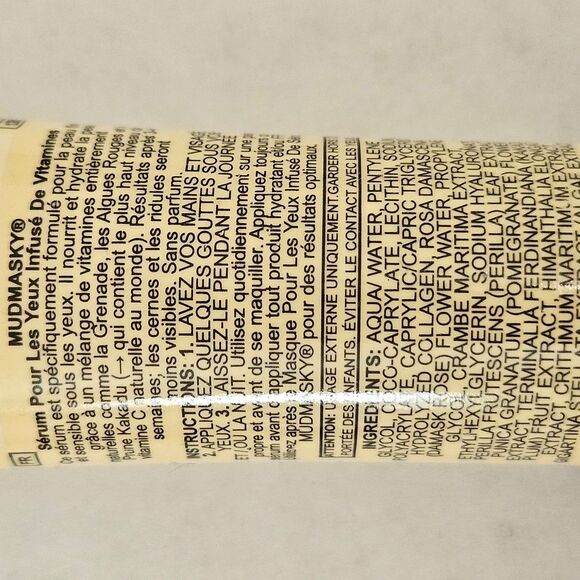 FR
MUDMASKY®
Sérum Pour Les Yeux Infusé De Vitamines
Ce sérum est spécifiquement formulé pour la peau
et sensible sous les yeux. Il nourrit et hydrate la
grâce à un mélange de vitamines entièrement
naturelles comme la Grenade, les Algues Rouges
Prune Kakadu (→ qui contient le plus haut niveau
vitamine C naturelle au monde). Résultats après
semaines, les cernes et les ridules seront
moins visibles. Sans parfum.
INSTRUCTIONS: 1. LAVEZ VOS MAINS ET VISAGE
2. APPLIQUEZ QUELQUES GOUTTES SOUS
YEUX. 3. LAISSEZ-LE PENDANT LA JOURNÉE
ET / OU LA NUIT. Utilisez quotidiennement sur une
propre et avant de se maquiller. Appliquez toujours
serum avant d'appliquer tout produit hydratant
Utilisez après le Masque Pour Les Yeux Infusé De
MUDMASKY® pour des résultats optimaux
ATTENTION: USAGE EXTERNE UNIQUEMENT. GARDER HORS
PORTÉE DES ENFANTS. ÉVITER LE CONTACT AVEC LES
INGREDIENTS: AQUA/ WATER, PENTYLENE
GLYCOL, COCO-CAPRYLATE, LECITHIN,
POLYACRYLATE, CAPRYLIC/CAPRIC
HYDROLYZED COLLAGEN, ROSA
DAMASK ROSE) FLOWER WATER,
GLYCOL, CRAMBE MARITIMA EXTRACT,
ETHYLHEXYLGLYCERIN, SODIUM
PERILLA FRUTESCENS (PERILLA) LEAF
PUNICA GRANATUM (POMEGRANATE)
EXTRACT, TERMINALIA FERDINANDIANA
PLUM) FRUIT EXTRACT, HIMANTHALIA
EXTRACT, CRITHMUM MARITIMUM
GIGARTINA